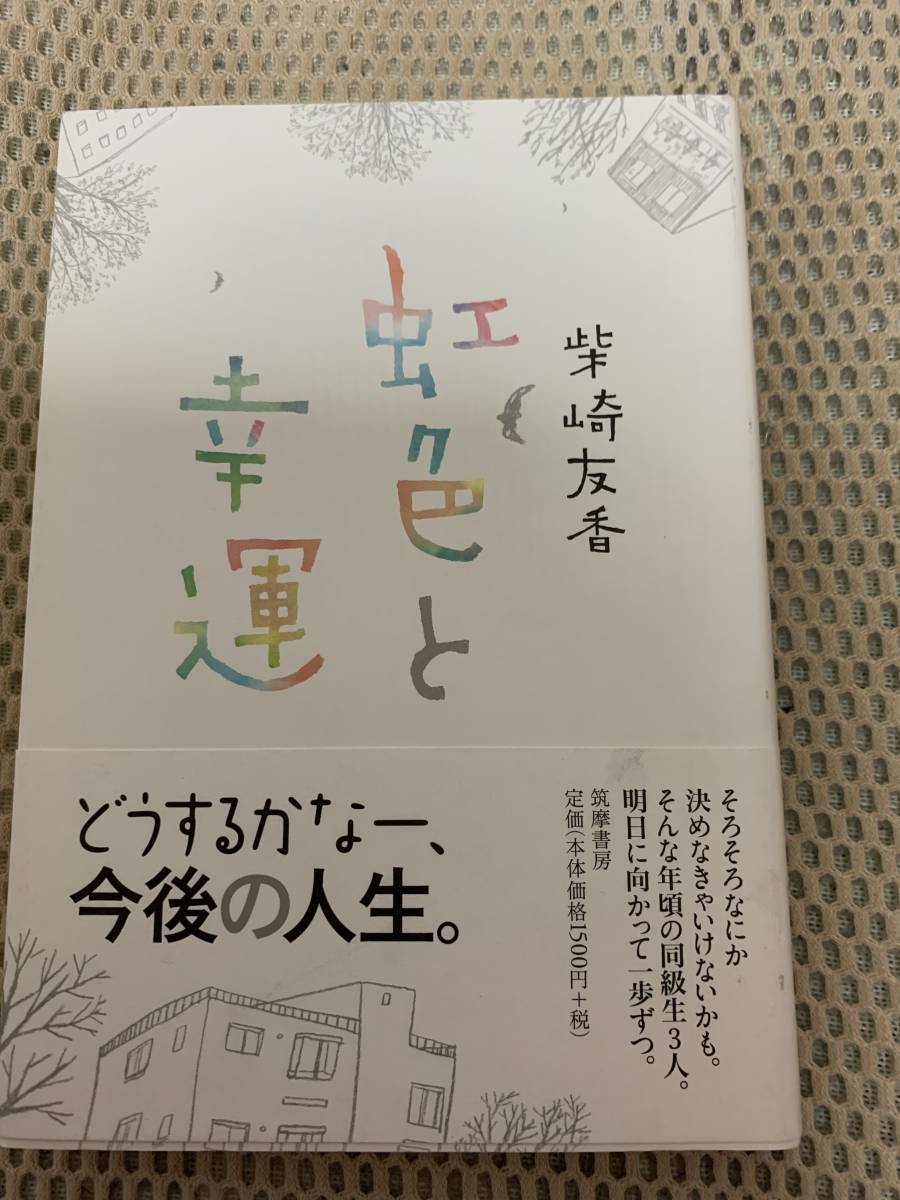 柴崎友香
虹色と
幸運
どうするかなー、
今後の人生。
そろそろなにか
決めなきゃいけないかも。
そんな年頃の同級生3人。
明日に向かって一歩ずつ。
筑摩書房
定価(本体価格1500円+税)